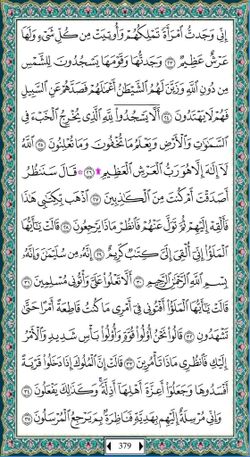 إِنِّي وَجَدتُّ ٱمْرَأَةً تَمْلِكُهُمْ وَأُوتِيَتْ مِن كُلِّ شَيْءٍ وَلَهَا
عَرْشٌ عَظِيمٌ ٢٣ وَجَدتُّهَا وَقَوْمَهَا يَسْجُدُونَ لِلشَّمْسِ
مِن دُونِ ٱللَّهِ وَزَيَّنَ لَهُمُ ٱلشَّيْطَٰنُ أَعْمَٰلَهُمْ فَصَدَّهُمْ عَنِ ٱلسَّبِيلِ
فَهُمْ لَا يَهْتَدُونَ ٢٤ أَلَّا يَسْجُدُوا۟ لِلَّهِ ٱلَّذِي يُخْرِجُ ٱلْخَبْءَ فِي
ٱلسَّمَٰوَٰتِ وَٱلْأَرْضِ وَيَعْلَمُ مَا تُخْفُونَ وَمَا تُعْلِنُونَ ٢٥ ٱللَّهُ
لَآ إِلَٰهَ إِلَّا هُوَ رَبُّ ٱلْعَرْشِ ٱلْعَظِيمِ ۩ ٢٦ ۞ قَالَ سَنَنظُرُ
أَصَدَقْتَ أَمْ كُنتَ مِنَ ٱلْكَٰذِبِينَ ٢٧ ٱذْهَب بِّكِتَٰبِي هَٰذَا
فَأَلْقِهْ إِلَيْهِمْ ثُمَّ تَوَلَّ عَنْهُمْ فَٱنظُرْ مَاذَا يَرْجِعُونَ ٢٨ قَالَتْ يَٰٓأَيُّهَا
ٱلْمَلَؤُا۟ إِنِّيٓ أُلْقِيَ إِلَيَّ كِتَٰبٌ كَرِيمٌ ٢٩ إِنَّهُۥ مِن سُلَيْمَٰنَ وَإِنَّهُۥ
بِسْمِ ٱللَّهِ ٱلرَّحْمَٰنِ ٱلرَّحِيمِ ٣٠ أَلَّا تَعْلُوا۟ عَلَيَّ وَأْتُونِي مُسْلِمِينَ ٣١
قَالَتْ يَٰٓأَيُّهَا ٱلْمَلَؤُا۟ أَفْتُونِي فِيٓ أَمْرِي مَا كُنتُ قَاطِعَةً أَمْرًا حَتَّىٰ
تَشْهَدُونِ ٣٢ قَالُوا۟ نَحْنُ أُو۟لُوا۟ قُوَّةٍ وَأُو۟لُوا۟ بَأْسٍ شَدِيدٍ وَٱلْأَمْرُ
إِلَيْكِ فَٱنظُرِي مَاذَا تَأْمُرِينَ ٣٣ قَالَتْ إِنَّ ٱلْمُلُوكَ إِذَا دَخَلُوا۟ قَرْيَةً
أَفْسَدُوهَا وَجَعَلُوٓا۟ أَعِزَّةَ أَهْلِهَآ أَذِلَّةً ۖ وَكَذَٰلِكَ يَفْعَلُونَ ٣٤
وَإِنِّي مُرْسِلَةٌ إِلَيْهِم بِهَدِيَّةٍ فَنَاظِرَةٌۢ بِمَ يَرْجِعُ ٱلْمُرْسَلُونَ ٣٥
379